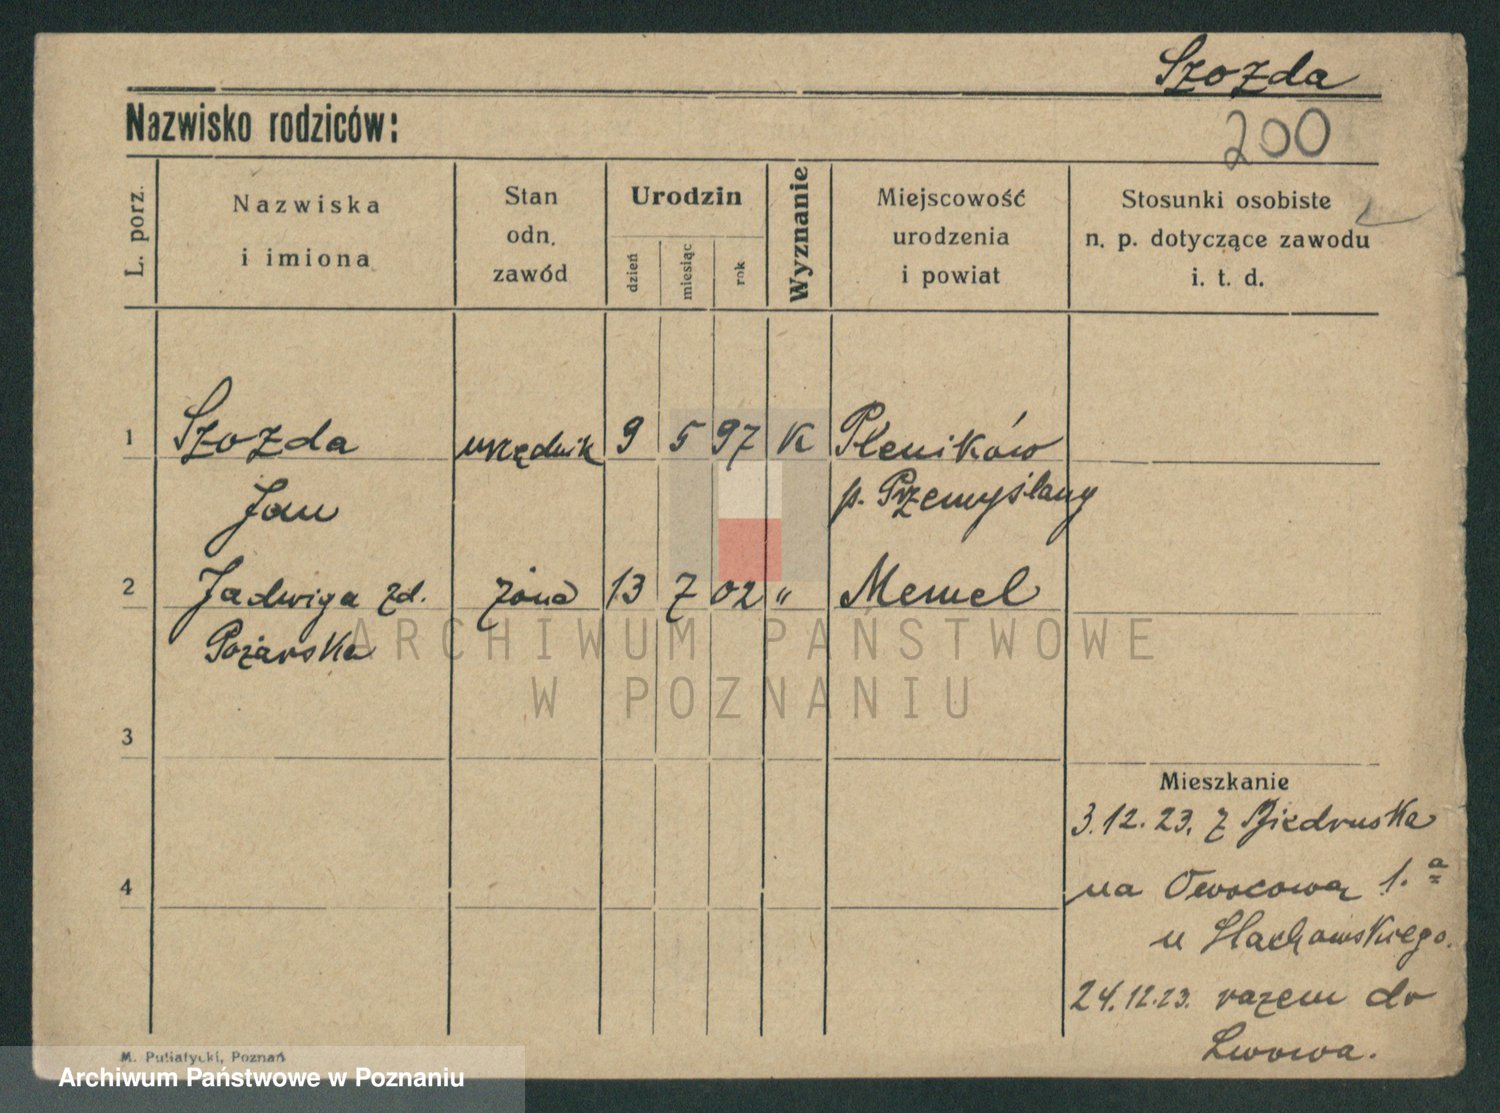 Szozda
Nazwisko rodziców:
200
L. porz.
Nazwiska
i imiona
Stan
odn.
zawód
Urodzin
dzień
miesiąc
rok
Wyznanie
Miejscowość
urodzenia
i powiat
Stosunki osobiste
n. p. dotyczące zawodu
i. t. d.
1 Szozda urzędnik 9 5 97 K Pleników
Jan p. Przemyślany
2 Jadwiga zd. żona 13 7 02 " Memel
Pożarska
ARCHIWUM PAŃSTWOWE
W POZNANIU
3
Mieszkanie
3.12.23. z Biedruska
4
na Owocową 1.a
u Stachowskiego.
24.12.23. razem do
Lwowa.
M. Putiatycki, Poznań
Archiwum Państwowe w Poznaniu